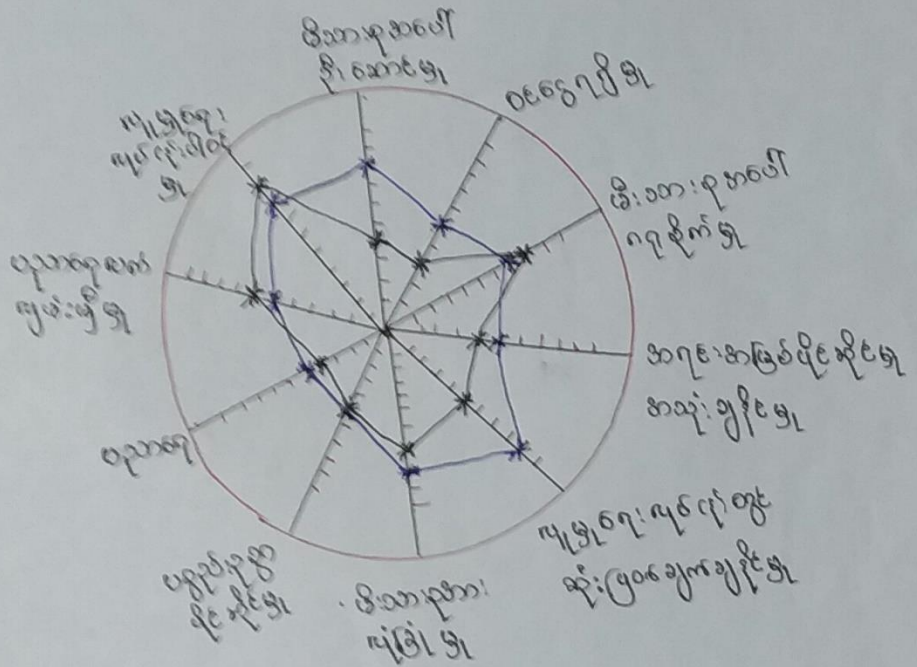 မိသားစုအပေါ်
ဦးဆောင်မှု
ဝင်ငွေရရှိမှု
မိသားစုအပေါ်
ဂရုစိုက်မှု
အရင်းအမြစ်ပိုင်ဆိုင်မှု
အသုံးချနိုင်မှု
လူမှုရေးလုပ်ငန်းတွင်
ဆုံးဖြတ်ချက်ချနိုင်မှု
မိသားစုအား
လုံခြုံမှု
ပစ္စည်းဥစ္စာ
ပိုင်ဆိုင်မှု
ပညာရေ
ပညာရေလတ်
ကျမ်းမှီမှု
လူမှုရေး
လုပ်ငန်းပါဝင်
မှု